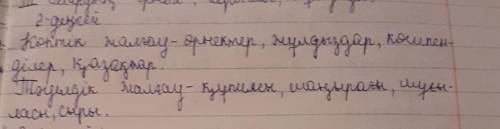 2-деңгей
Көптік жалғау - өрнектер, жұлдыздар, көшпен-
ділер, Қазақтар.
Тәуелдік жалғау - құпиясы, шаңырағы, шуы-
ласы, сыры.